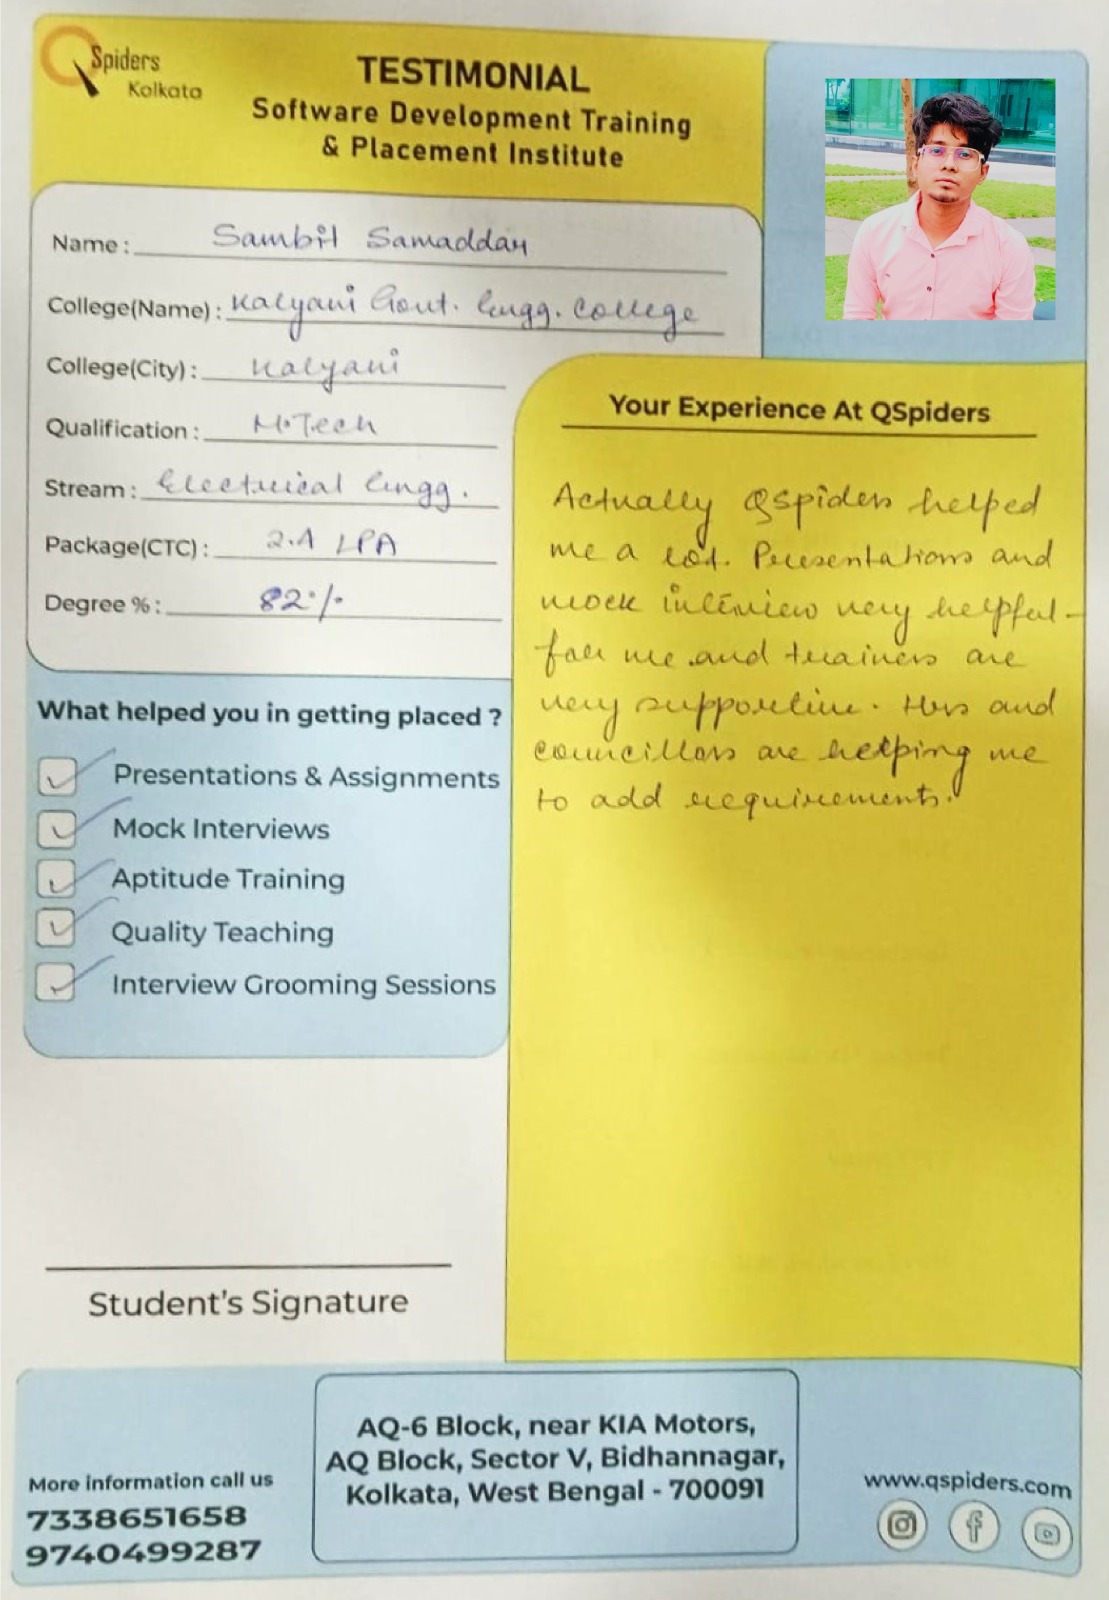 QSpiders
Kolkata
TESTIMONIAL
Software Development Training
& Placement Institute
Name : Sambit Samaddar
College(Name) : Kalyani Govt. Engg. College
College(City) : Kalyani
Qualification : M.Tech
Stream : Electrical Engg.
Package(CTC) : 2.4 LPA
Degree % : 82%
What helped you in getting placed ?
Presentations & Assignments
Mock Interviews
Aptitude Training
Quality Teaching
Interview Grooming Sessions
Your Experience At QSpiders
Actually QSpiders helped
me a lot. Presentations and
mock interview very helpful
for me and trainers are
very supportive. Hrs and
councillors are helping me
to add requirements.
Student's Signature
More information call us
7338651658
9740499287
AQ-6 Block, near KIA Motors,
AQ Block, Sector V, Bidhannagar,
Kolkata, West Bengal - 700091
www.qspiders.com